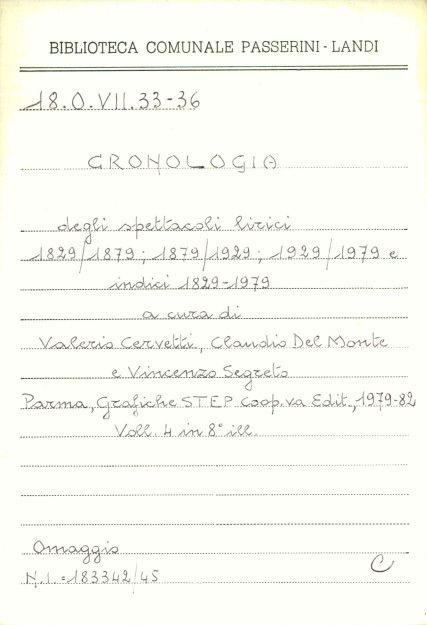 BIBLIOTECA COMUNALE PASSERINI-LANDI
18.O.VII.33-36
CRONOLOGIA
degli spettacoli lirici
1829/1879; 1879/1929; 1929/1979 e
indici 1829-1979
a cura di
Valerio Cervetti, Claudio Del Monte
e Vincenzo Segreto
Parma, Grafiche STEP Coop.va Edit., 1979-82
Voll. 4 in 8° ill.
Omaggio
N.I. = 183342/45
C